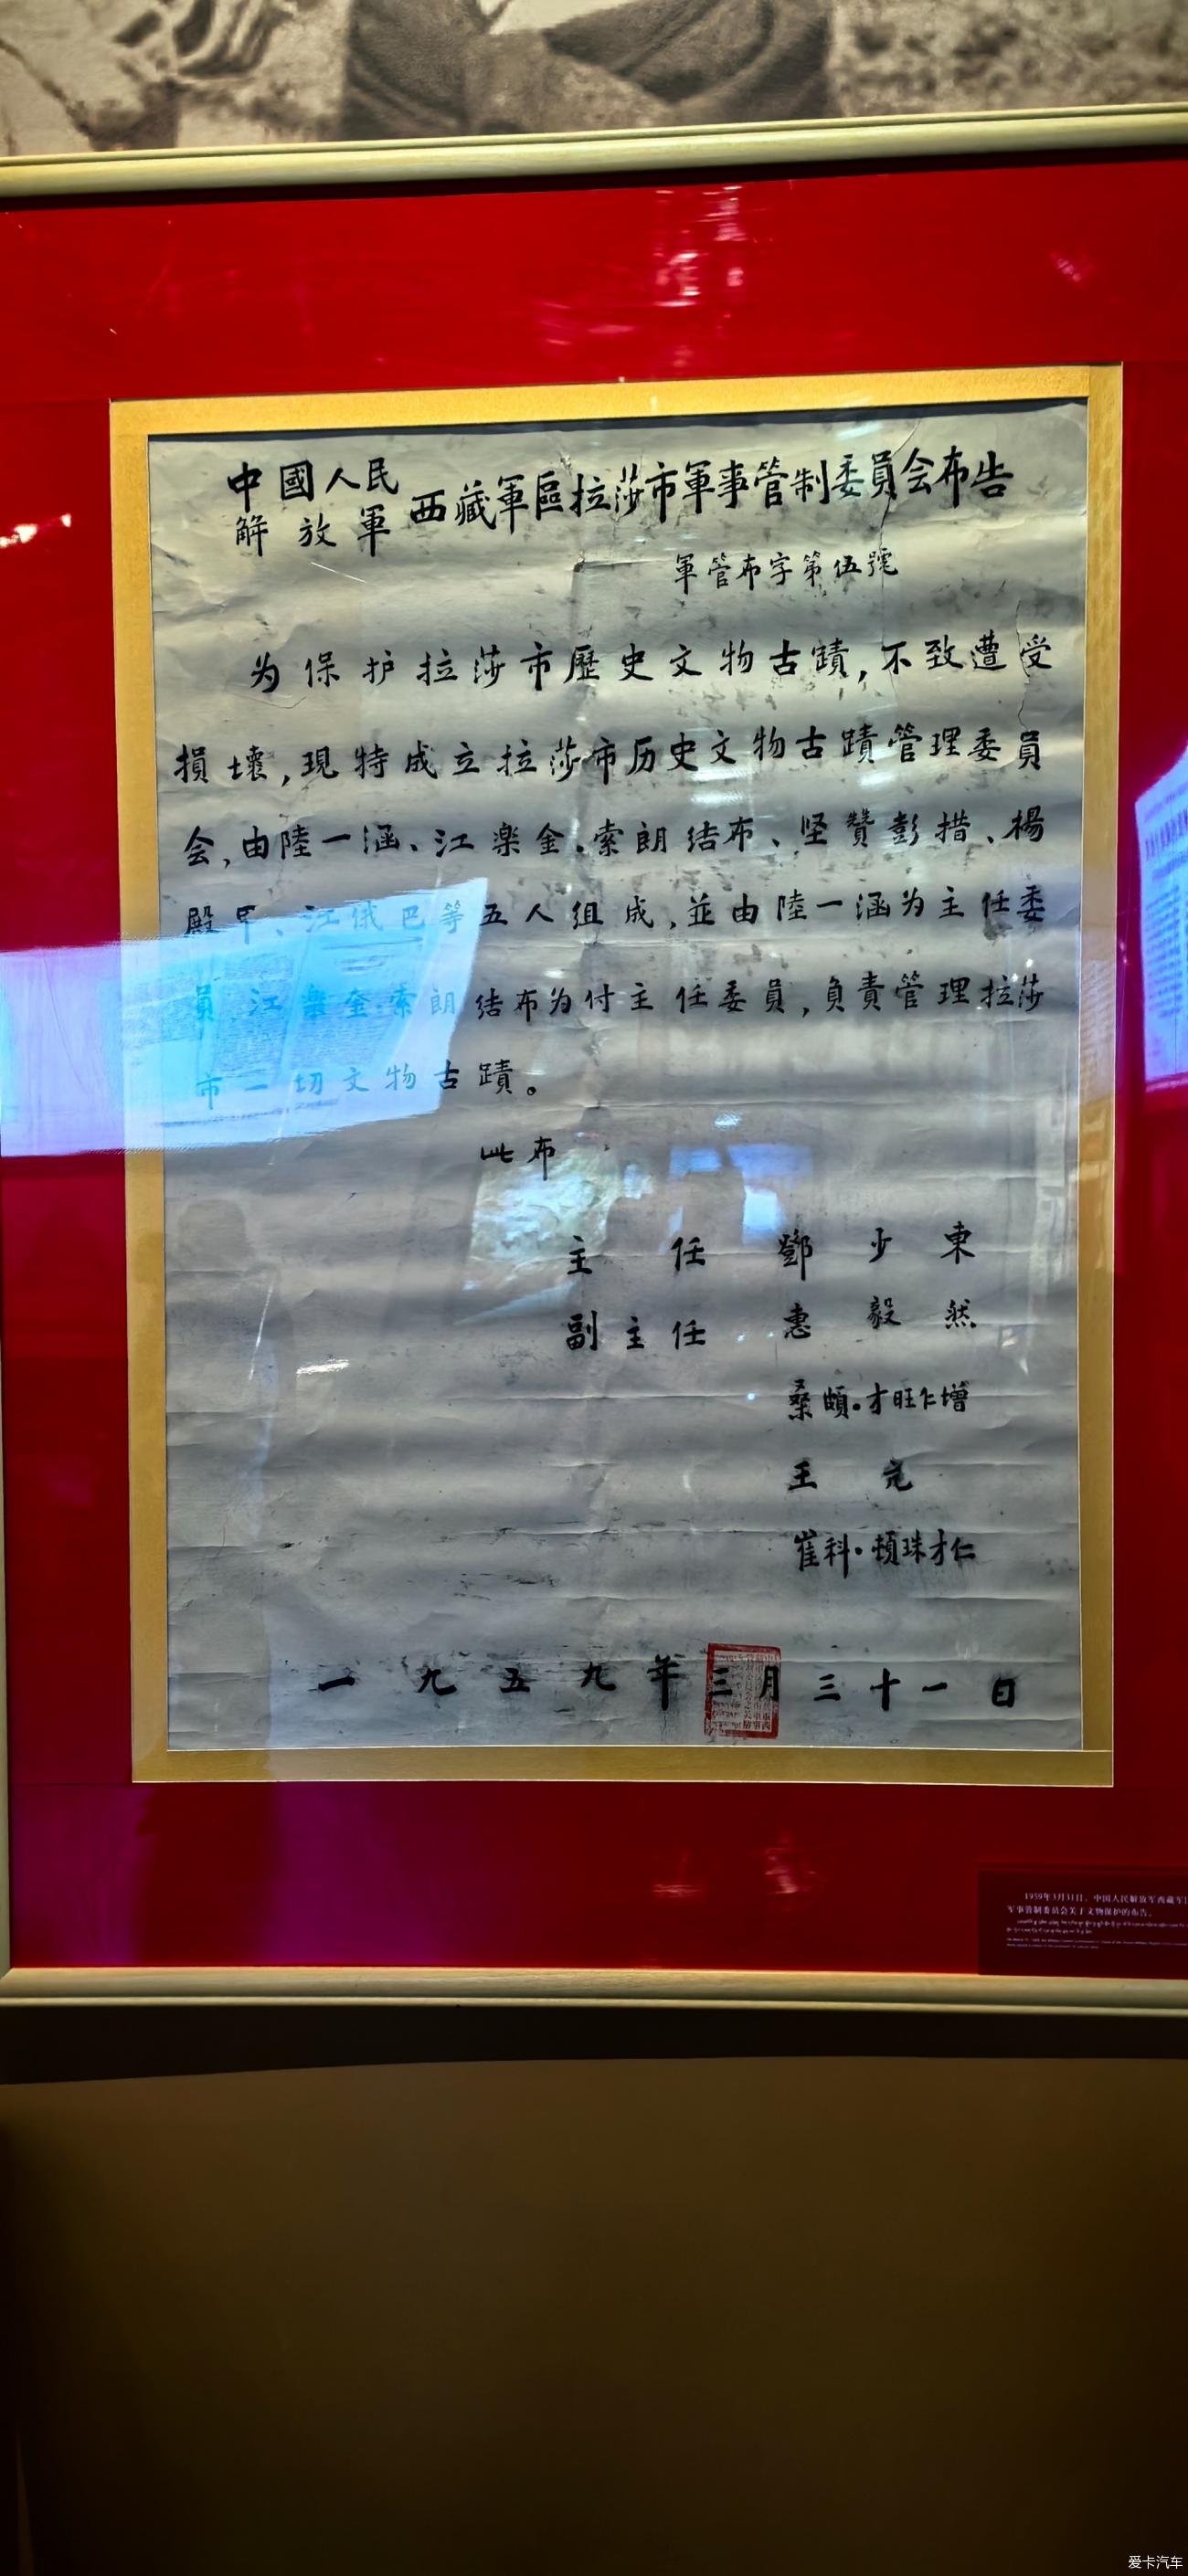 中國人民
解放軍
西藏軍區拉莎市軍事管制委員会布告
軍管布字第伍號
为保护拉莎市歷史文物古蹟,不致遭受
損壞,現特成立拉莎市历史文物古蹟管理委員
会,由陸一涵、江楽金.索朗结布、坚贊彭措、楊
殿甲、江俄巴等五人组成,並由陸一涵为主任委
員江楽奎索朗结布为付主任委員,負責管理拉莎
市一切文物古蹟。
此布
主任 鄧少東
副主任 惠毅然
桑頗.才旺仁增
王亢
崔科·頓珠才仁
一九五九年三月三十一日
1959年3月31日,中国人民解放军西藏军
军事管制委员会关于文物保护的布告。
爱卡汽车